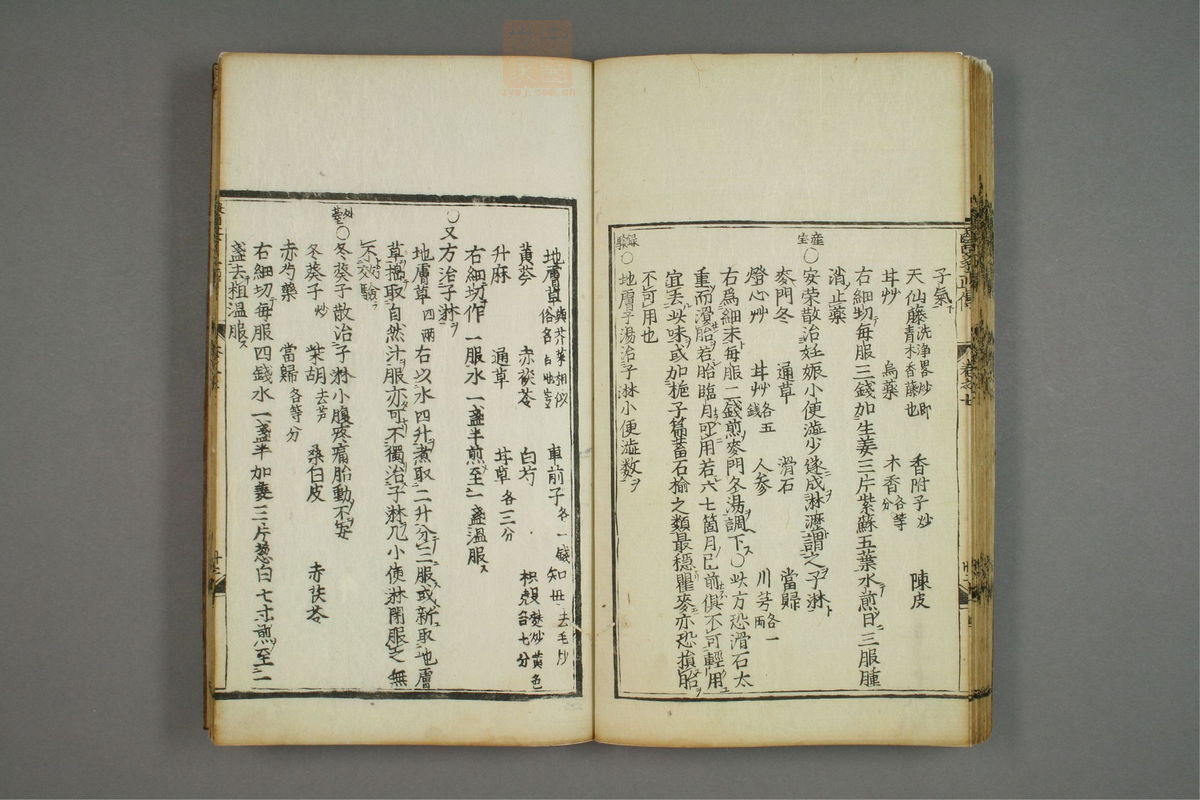 子氣
天仙藤洗浄畧炒即青木香藤也　香附子炒　陳皮
甘艸　烏藥　木香各等分
右細切每服三錢加生姜三片紫蘇五葉水煎日三服腫
消止藥
産宝○安荣散治妊娠小便澁少遂成淋瀝謂之子淋
麥門冬　通草　滑石　當歸
燈心艸　甘艸各五錢　人参　川芎各一兩
右爲細末每服二錢煎麥門冬湯調下○此方恐滑石太
重而滑胎若胎臨月可用若六七箇月已前俱不可輕用
宜去此味或加梔子萹蓄石楡之類最穏瞿麥亦恐損胎
不可用也
録驗○地膚子湯治子淋小便澁数
地膚草與芥菜相似俗名白地葵　車前子各一錢　知母去毛炒
黄芩　赤茯苓　白芍　枳殼麩炒黄色各七分
升麻　通草　甘草各三分
右細切作一服水一盞半煎至一盞温服
○又方治子淋
地膚草四兩右以水四升煮取二升分三服或新取地膚
草搗取自然汁服亦可不獨治子淋凡小便淋閉服之無
不效驗
外臺○冬葵子散治子淋小腹疼痛胎動不安
冬葵子炒　柴胡去芦　桑白皮　赤茯苓
赤芍藥　當歸各等分
右細切每服四錢水一盞半加姜三片葱白七寸煎至一
盞去粗温服
醫學正傳　卷之七